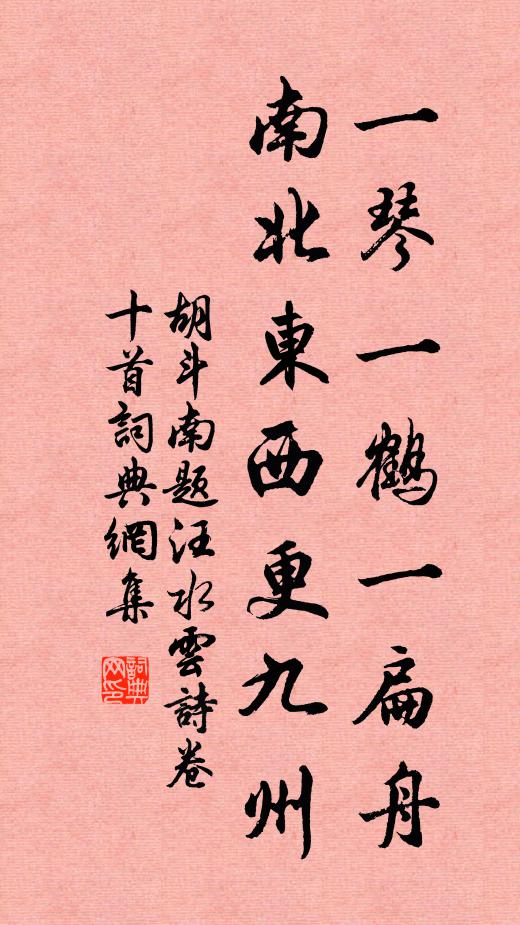 一琴一鶴一扁舟
南北東西更九州
胡斗南题汪水雲詩卷
十首詞典網集
詞典網印